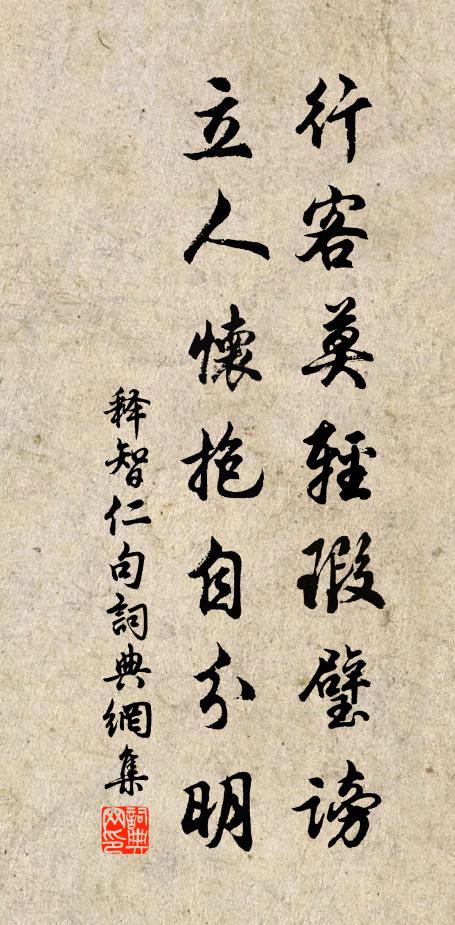 行客莫輕瑕璧謗
立人懷抱自分明
释智仁句詞典網集
詞典网印